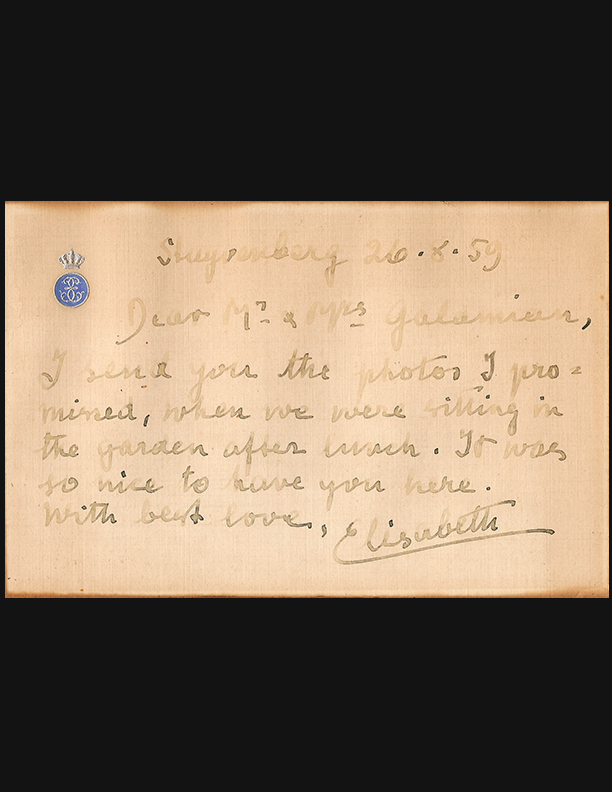 Stuyvenberg 26.8.59
Dear Mr & Mrs Galamian,
I send you the photos I pro=
missed, when we were sitting in
the garden after lunch. It was
so nice to have you here.
With best love, Elisabeth